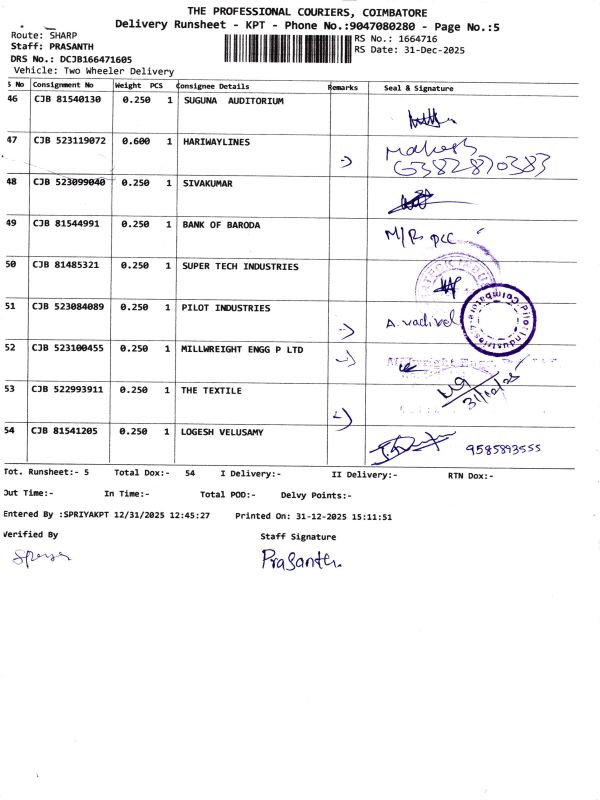 THE PROFESSIONAL COURIERS, COIMBATORE
Delivery Runsheet - KPT - Phone No.:9047080280 - Page No.:5
Route: SHARP
RS No.: 1664716
Staff: PRASANTH
RS Date: 31-Dec-2025
DRS No.: DCJB166471605
Vehicle: Two Wheeler Delivery
S No Consignment No Weight PCS Consignee Details Remarks Seal & Signature
46 CJB 81540130 0.250 1 SUGUNA AUDITORIUM
47 CJB 523119072 0.600 1 HARIWAYLINES Mahesh
6382870383
48 CJB 523099040 0.250 1 SIVAKUMAR
49 CJB 81544991 0.250 1 BANK OF BARODA M/R pcc
50 CJB 81485321 0.250 1 SUPER TECH INDUSTRIES
51 CJB 523084089 0.250 1 PILOT INDUSTRIES A. vadivel Pilot Industries Coimbatore
52 CJB 523100455 0.250 1 MILLWRIGHT ENGG P LTD
53 CJB 522993911 0.250 1 THE TEXTILE 31/12/25
54 CJB 81541205 0.250 1 LOGESH VELUSAMY 9585893555
Tot. Runsheet:- 5 Total Dox:- 54 I Delivery:- II Delivery:- RTN Dox:-
Out Time:- In Time:- Total POD:- Delvy Points:-
Entered By :SPRIYAKPT 12/31/2025 12:45:27 Printed On: 31-12-2025 15:11:51
Verified By Staff Signature
Prasanth.